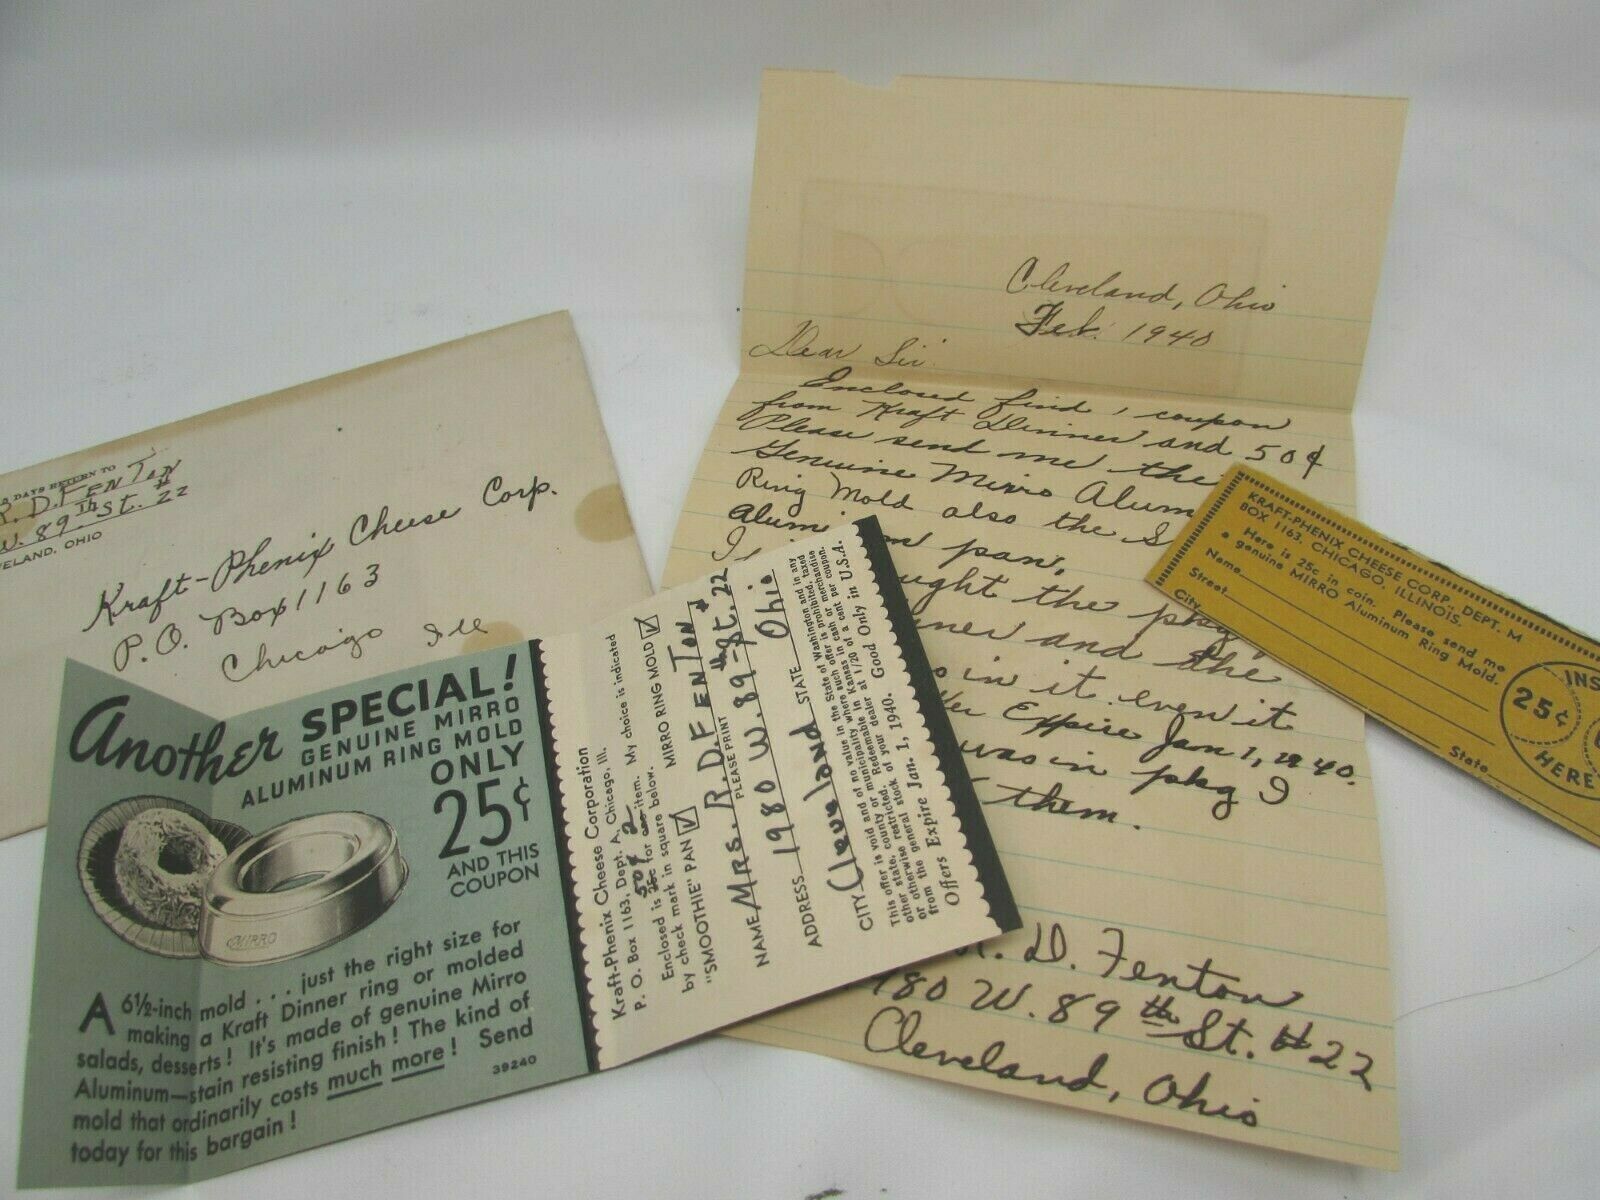 DAYS RETURN TO
R. D. FENTON
W. 89th St. 22
CLEVELAND, OHIO
Kraft-Phenix Cheese Corp.
P.O. Box 1163
Chicago Ill
Another SPECIAL!
GENUINE MIRRO
ALUMINUM RING MOLD
ONLY
25¢
AND THIS
COUPON
MIRRO
A 6½-inch mold . . . just the right size for
making a Kraft Dinner ring or molded
salads, desserts! It's made of genuine Mirro
Aluminum—stain resisting finish! The kind of
mold that ordinarily costs much more! Send
today for this bargain!
39240
Kraft-Phenix Cheese Corporation
P. O. Box 1163, Dept. A, Chicago, Ill.
50¢ 2
Enclosed is 25c for one item. My choice is indicated
by check mark in square below.
"SMOOTHIE" PAN ☑ MIRRO RING MOLD ☑
NAME Mrs. R. D. FENTON
PLEASE PRINT
ADDRESS 1980 W. 89-St. #22
CITY Cleveland STATE Ohio
This offer is void in the State of Washington and in any
other state, county or municipality where such offer is prohibited, taxed
or otherwise restricted. Redeemable at 1/20 of a cent per coupon
Offers Expire Jan. 1, 1940. Good Only in U.S.A.
Cleveland, Ohio
Feb. 1940
Dear Sir:
Enclosed find 1 coupon
from Kraft Dinner and 50¢
Please send me the
Genuine Mirro Alum
Ring Mold also the S
Alumi pan.
I ught the pkg
ner and the
in it even it
Expire Jan 1, 1940.
was in pkg I
them.
R. D. Fenton
1980 W. 89th St. #22
Cleveland, Ohio
KRAFT-PHENIX CHEESE CORP., DEPT. M
BOX 1163, CHICAGO, ILLINOIS.
Here is 25c in coin. Please send me
a genuine MIRRO Aluminum Ring Mold.
Name
Street
City State
INS
25¢
HERE